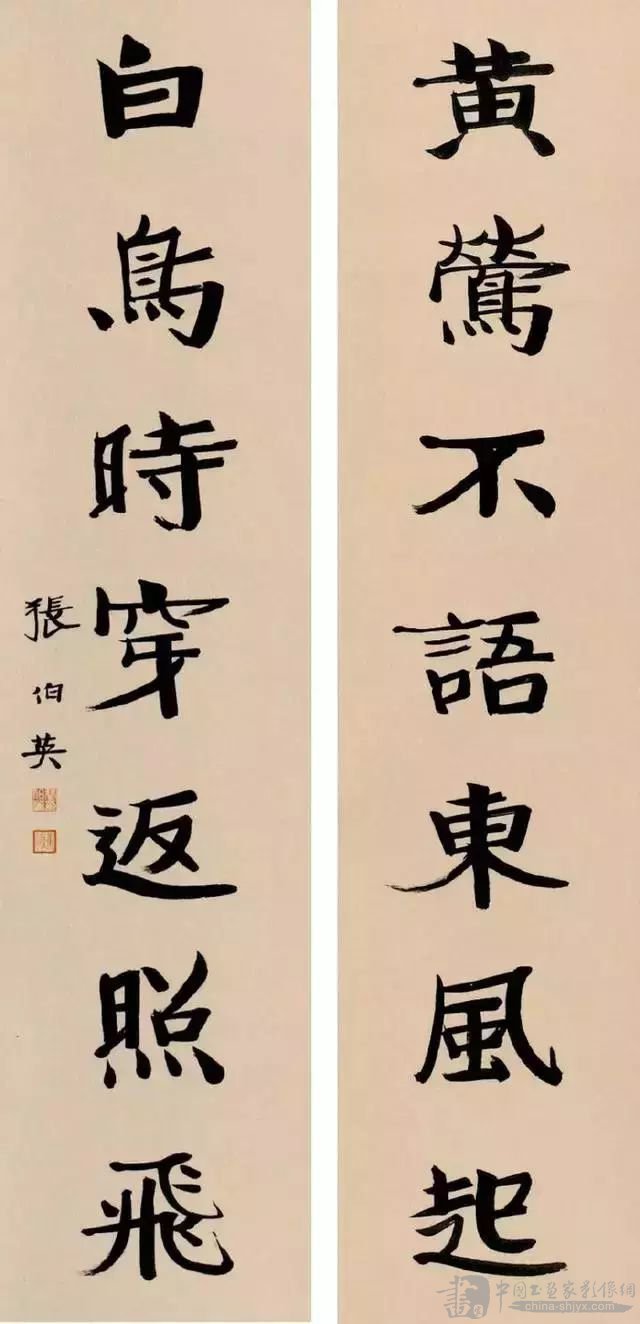 黃鶯不語東風起
白鳥時穿返照飛
張伯英
中國書畫家影像網
china-shjyx.com